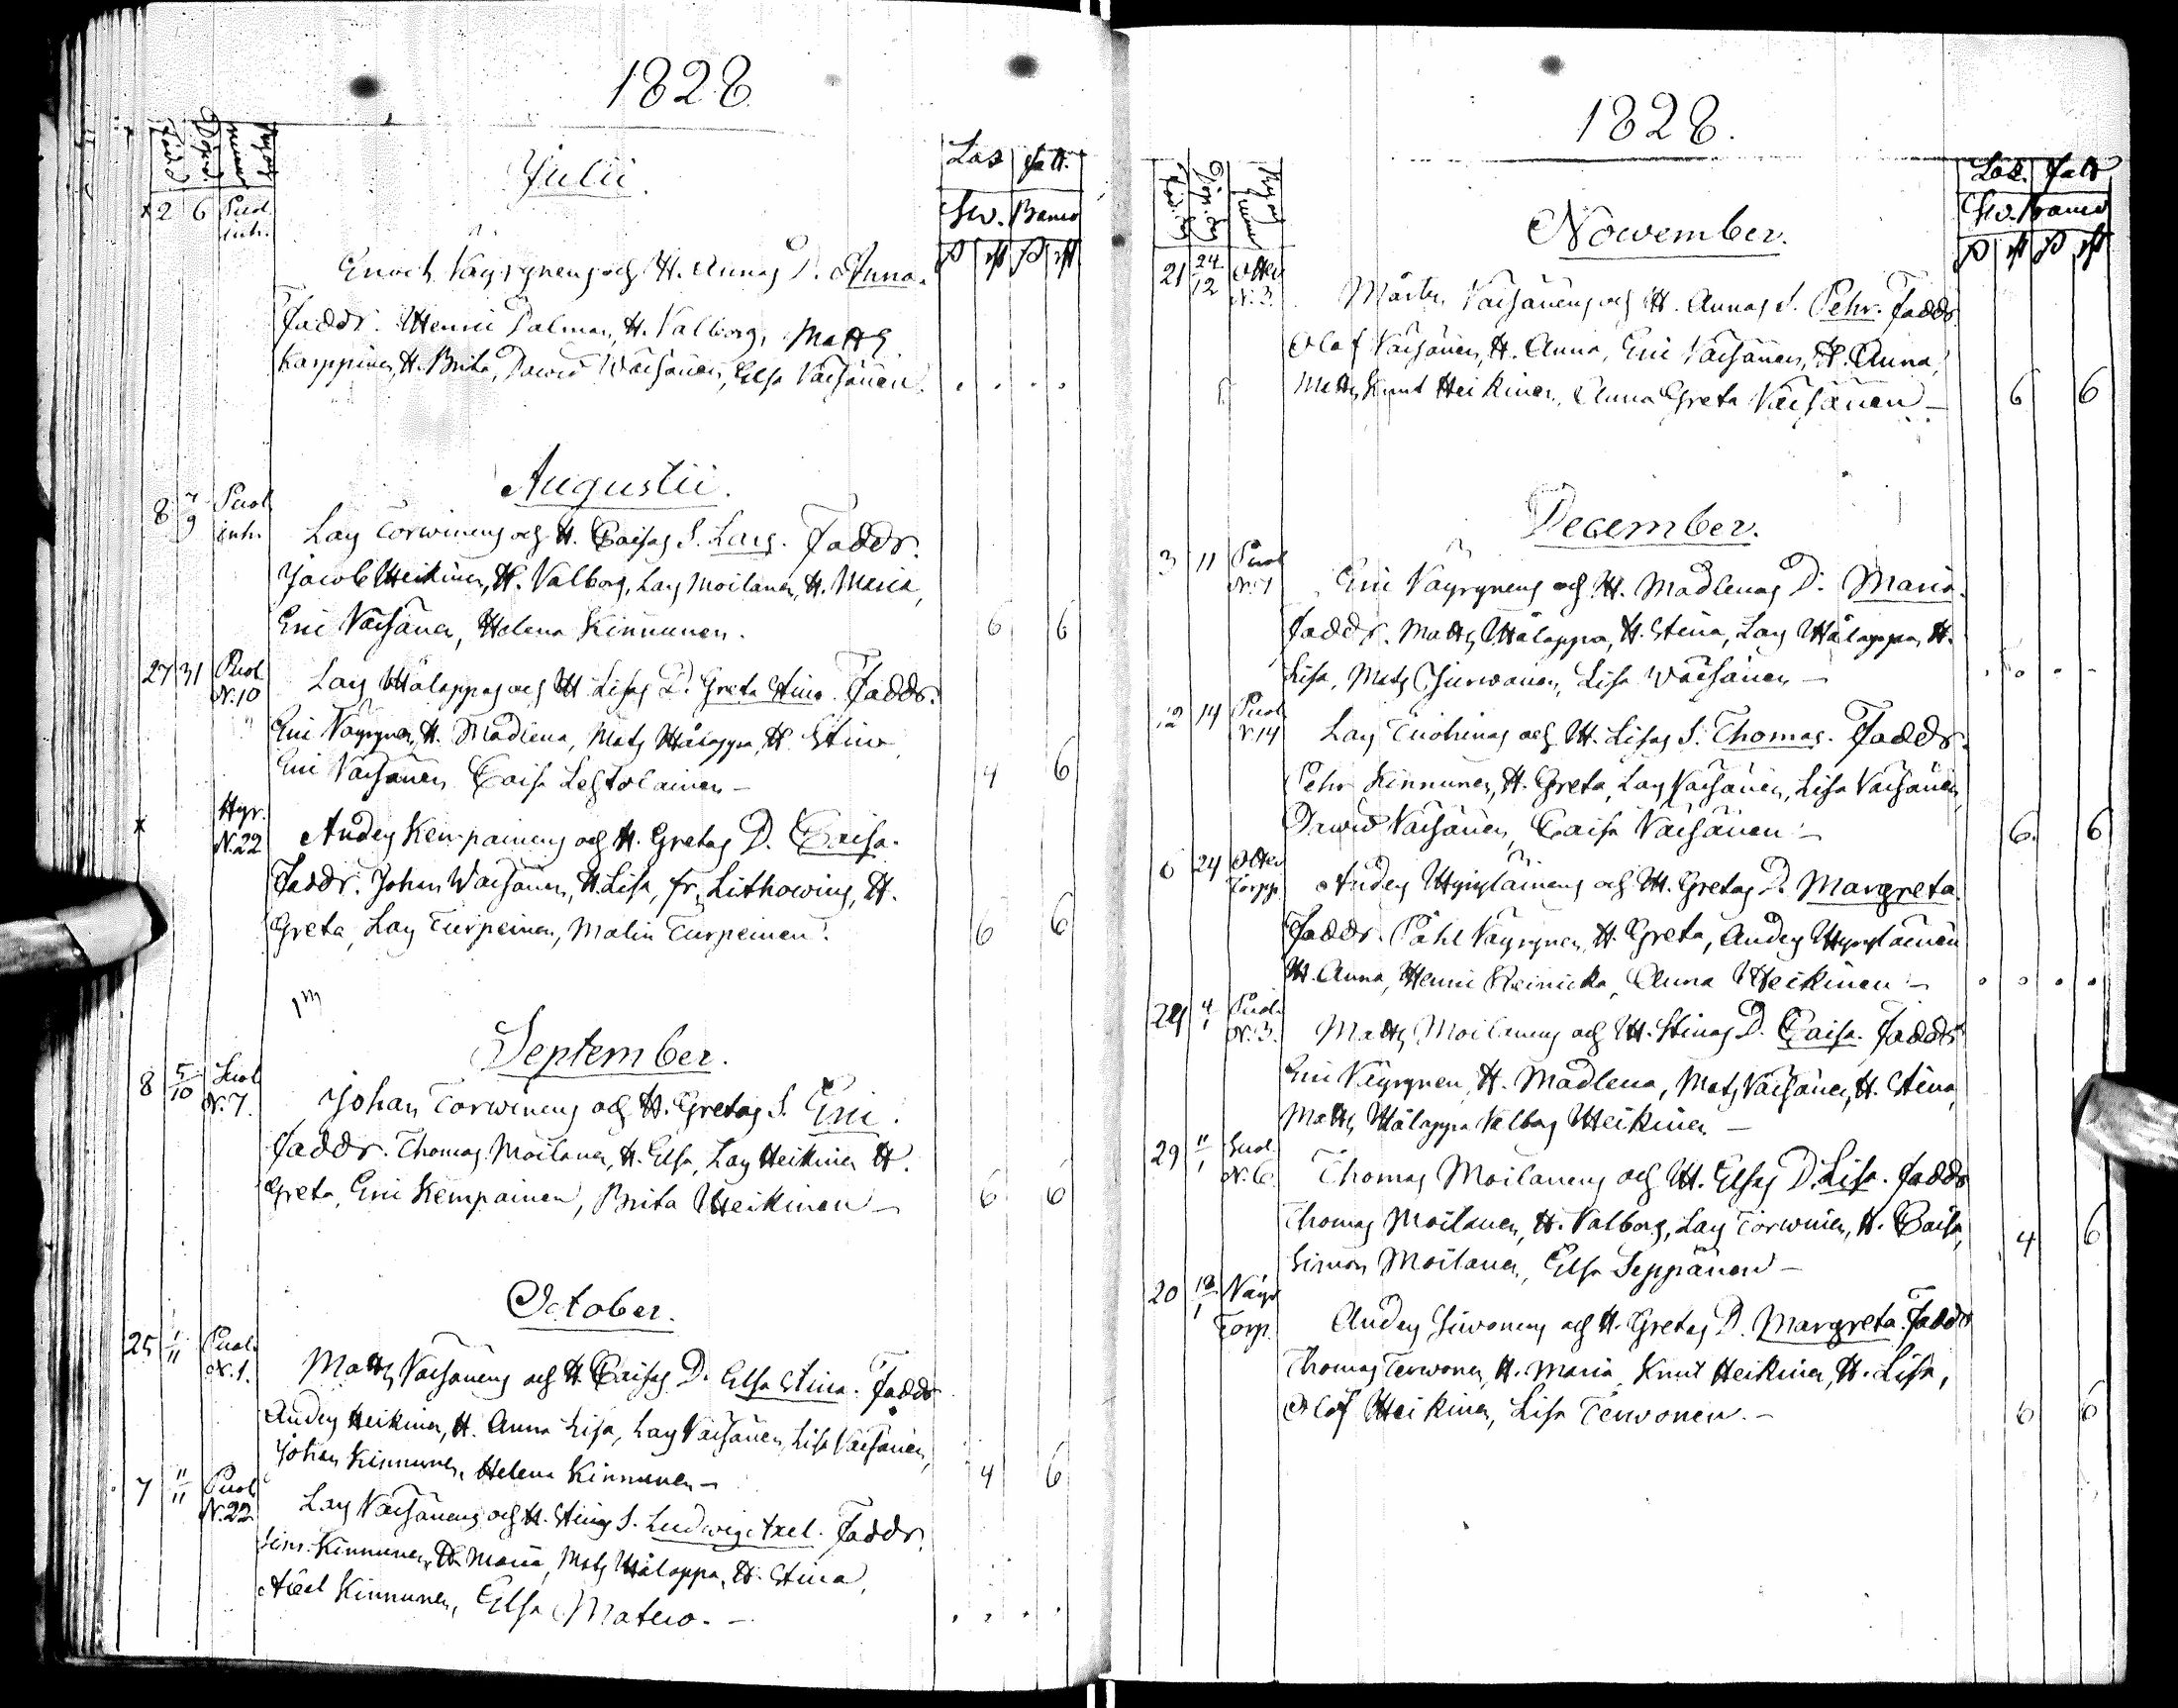 1828
Julii.
Las fatt.
Sw. Banco
2 6 Puol. inh.
Enoch Väyrynens och H. Annas D. Anna.
Faddr. Henric Palman, H. Valborg, Matts
Karppinen, H. Brita, Dawid Wäisänen, Elsa Väisänen.
Augustii.
8 7/9 Puol inh.
Lars Torwinens och H. Caisas S. Lars. Faddr.
Jacob Heikinen, H. Valborg, Lars Moilanen, H. Maria,
Eric Väisänen, Helena Kinnunen. 6 6
27 31 Puol N.10
Lars Hälappas och H. Lisas D. Greta Stina. Faddr.
Eric Väyrynen, H. Madlena, Mats Hälappa, H. Stina
Eric Väisänen, Caisa Lehtolainen – 4 6
Hyr. N.22
Anders Kempainens och H. Gretas D. Caisa.
Faddr. Johan Wäisänen, H. Lisa, fr. Lithowius, H.
Greta, Lars Turpeinen, Malin Turpeinen. 6 6
September.
8 5/10 Suol N.7.
Johan Torwinens och H. Gretas S. Eric.
Faddr. Thomas Moilanen, H. Elsa, Lars Heikinen H.
Greta, Eric Kempainen, Brita Heikinen – 6 6
October.
25 1/11 Puol. N.1.
Matts Väisänens och H. Caisas D. Elsa Stina. Faddr
Anders Heikinen, H. Anna Lisa, Lars Väisänen, Lisa Väisänen,
Johan Kinnunen, Helena Kinnunen – 4 6
7 11/11 Puol N.22
Lars Väisänens och H. Stinas S. Ludwig Axel. Faddr.
Sim. Kinnunen, H. Maria, Mats Hälappa, H. Stina,
Axel Kinnunen, Elsa Matero. –
1828.
Las. fatt
Sw. Banco
Nowember.
21 24/12 Otter N.3.
Mårten Väisänens och H. Annas S. Pehr. Faddr
Olof Väisänen, H. Anna, Eric Väisänen, H. Anna,
Matts Knut Heikinen, Anna Greta Väisänen – 6 6
December.
3 11 Puol N.7
Eric Väyrynens och H. Madlenas D. Maria.
Faddr. Matts Hälappa, H. Stina, Lars Hälappa, H.
Lisa, Mats Hurwanen, Lisa Wäisänen –
12 14 Puol N.14
Lars Tuohinos och H. Lisas S. Thomas. Faddr.
Pehr Kinnunen, H. Greta, Lars Väisänen, Lisa Väisänen,
Dawid Väisänen, Caisa Väisänen – 6. 6
6 24 Otter Torpp.
Anders Hyryläinens och H. Gretas D. Margreta.
Faddr. Påhl Väyrynen, H. Greta, Anders Hyryläinen
H. Anna, Henric Reinicka, Anna Heikinen –
29 4/1 Puol. N.3.
Matts Moilanens och H. Stinas D. Caisa. Faddr
Eric Väyrynen, H. Madlena, Mats Väisänen, H. Stina,
Matts Hälappa Valborg Heikinen –
29 11/1 Suol. N.6.
Thomas Moilanens och H. Elsas D. Lisa. Faddr
Thomas Moilanen, H. Valborg, Lars Torwinen, H. Caisa,
Simon Moilanen, Elsa Seppänen – 4 6
20 18/1 Näyr Torp.
Anders Siwonens och H. Gretas D. Margreta. Faddr
Thomas Terwonen, H. Maria, Knut Heikinen, H. Lisa,
Olof Heikinen, Lisa Terwonen. – 6 6